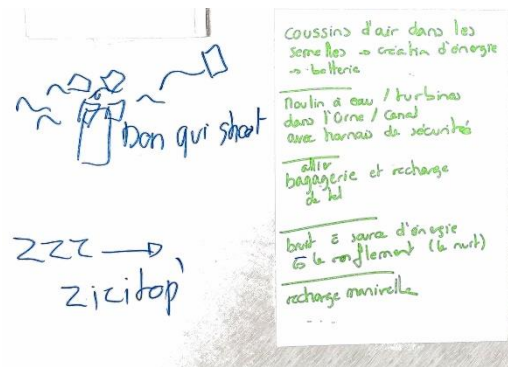 Don qui shoot
ZZZ →
zizitop'
coussins d'air dans les
semelles → création d'énergie
→ batterie
Moulin à eau / turbines
dans l'Orne / Canal
avec harnais de sécurités
allier
bagagerie et recharge
de tel
bruit = source d'énergie
le ronflement (la nuit)
recharge manivelle
...